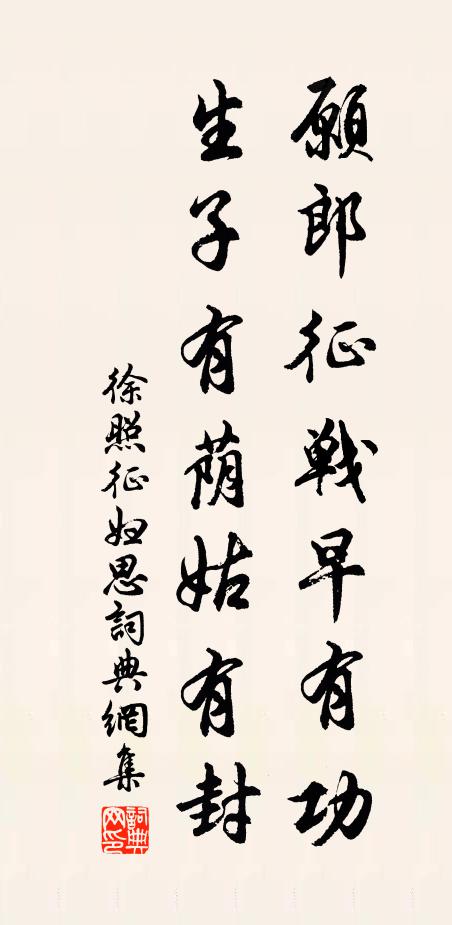 願郎征戰早有功
生子有蔭姑有封
徐照征婦思詞典網集
詞典網印